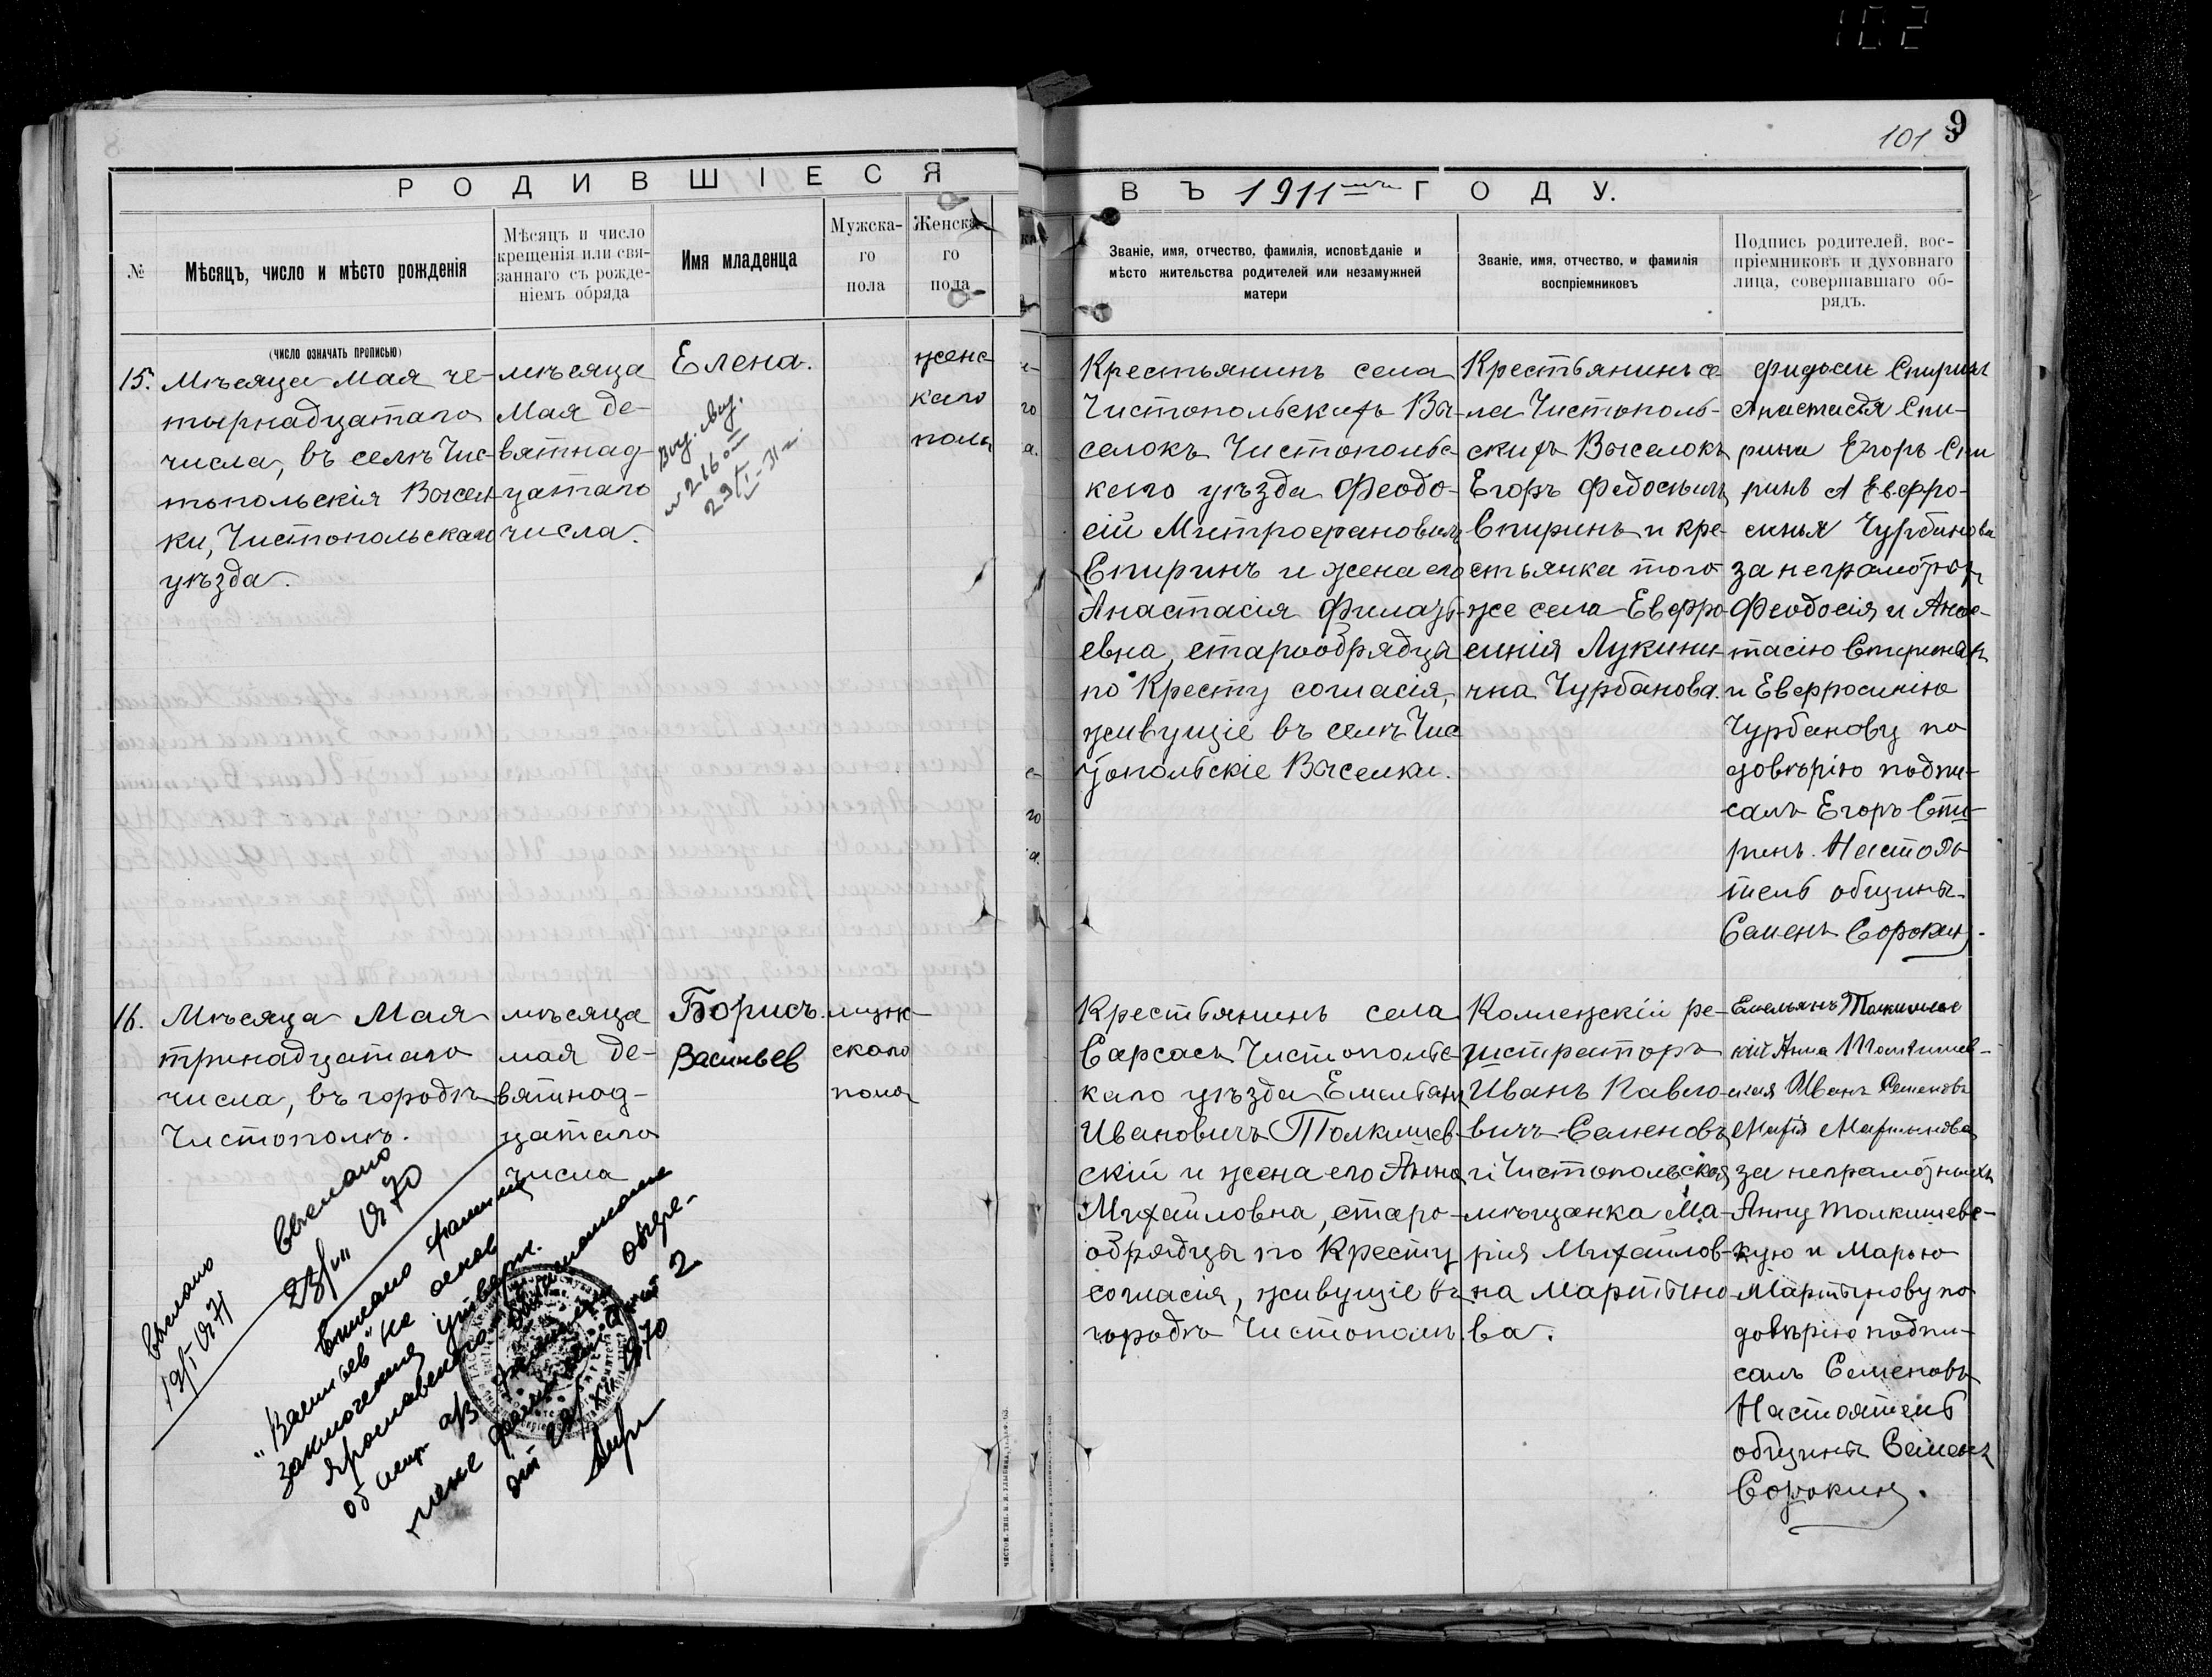 102
101 9
РОДИВШІЕСЯ
ВЪ 1911 ГОДУ.
№
Мѣсяцъ, число и мѣсто рожденія
(ЧИСЛО ОЗНАЧАТЬ ПРОПИСЬЮ)
Мѣсяцъ и число
крещенія или свя-
заннаго съ рожде-
ніемъ обряда
Имя младенца
Мужска-
го
пола
Женска-
го
пола
Званіе, имя, отчество, фамилія, исповѣданіе и
мѣсто жительства родителей или незамужней
матери
Званіе, имя, отчество, и фамилія
воспріемниковъ
Подпись родителей, вос-
пріемниковъ и духовнаго
лица, совершавшаго об-
рядъ.
15.
Мѣсяца Мая че-
тырнадцатаго
числа, въ селѣ Чис-
топольскія Высел-
ки, Чистопольскаго
уѣзда.
мѣсяца
Мая де-
вятнад-
цатаго
числа.
Елена.
Выд. свид.
№ 216
29/I-31
женс-
каго
пола
Крестьянинъ села
Чистопольскихъ Вы-
селокъ Чистопольс-
каго уѣзда Феодо-
сій Митрофановичъ
Спиринъ и жена его
Анастасія Филать-
евна, старообрядцы
по Кресту согласія,
живущіе въ селѣ Чис
топольскіе Выселки.
Крестьянинъ се-
ла Чистополь-
скихъ Выселокъ
Егоръ Федосѣичъ
Спиринъ и кре-
стьянка того
же села Евфро-
синія Лукини-
чна Чурбанова.
Фидосеи Спиринъ
Анастасія Спи-
рина Егоръ Спи
ринъ Евфро-
синья Чурбанова
за неграмотных
Феодосія и Анас-
тасію Спириных
и Евфросинію
Чурбанову по
довѣрію подпи-
салъ Егоръ Спи-
ринъ. Настоя-
тель общины
Семенъ Сорокин.
16.
Мѣсяца Мая
тринадцатаго
числа, въ городѣ
Чистополѣ.
мѣсяца
мая де-
вятнад-
цатаго
числа
Борисъ.
Васильев
муж-
скаго
пола
Крестьянинъ села
Сарсасъ Чистопольс-
каго уѣзда Емельянъ
Ивановичъ Толкишев-
скій и жена его Анна
Михайловна, старо-
обрядцы по Кресту
согласія, живущіе въ
городѣ Чистополѣ
Коллежскій ре-
гистраторъ
Иванъ Павло-
вичъ Семеновъ
и Чистопольская
мѣщанка Ма-
рія Михайлов-
на Мартьяно-
ва.
Емельянъ Толкишевс
кій Анна Толкишев-
ская Иванъ Семеновъ
Марія Мартьянова
за неграмотныхъ
Анну Толкишевс-
кую и Марью
Мартьянову по
довѣрію подпи-
салъ Семеновъ
Настоятель
общины Семенъ
Сорокин.
Выслано
19/I 1971
Выслано
23/XII 1970
Вписано фамилия
"Васильев" на основ.
заключения утверж.
Ярославского
от 29/XII 1970
ЧИСТОП. ТИП.